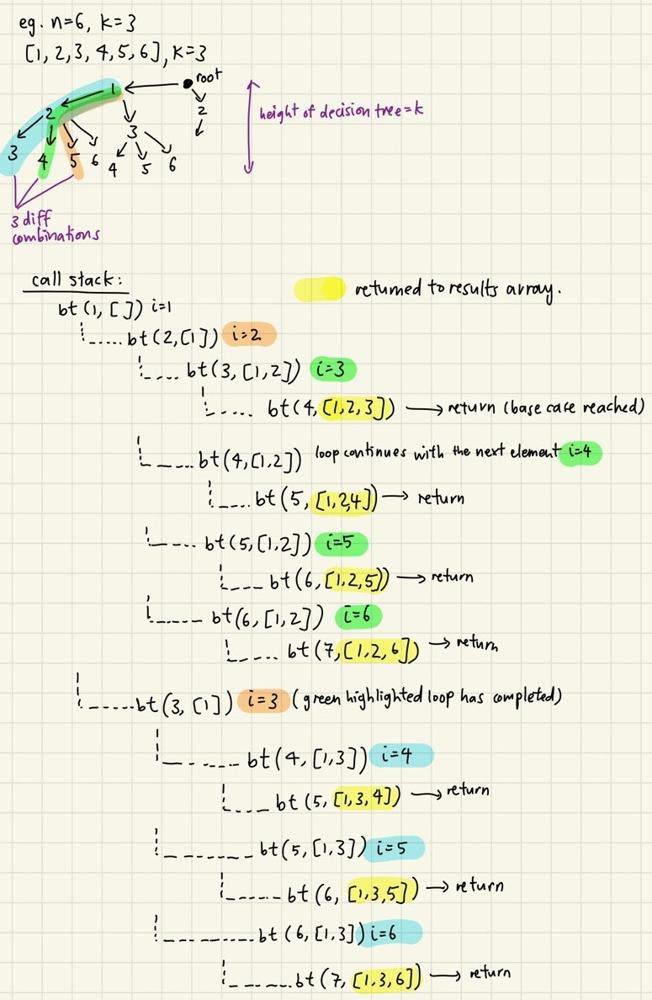 eg. n=6, k=3
[1, 2, 3, 4, 5, 6], k=3
root
1
2
2
3
3 4 5 6
4 5 6
height of decision tree=k
3 diff
combinations
call stack:
returned to results array.
bt (1, [ ]) i=1
bt(2,[1]) i=2
bt(3, [1,2]) i=3
bt(4, [1,2,3]) → return (base case reached)
bt(4,[1,2]) loop continues with the next element i=4
bt(5, [1,2,4]) → return
bt(5,[1,2]) i=5
bt(6, [1,2,5]) → return
bt(6, [1,2]) i=6
bt(7, [1,2,6]) → return
bt(3, [1]) i=3 (green highlighted loop has completed)
bt(4, [1,3]) i=4
bt (5, [1,3,4]) → return
bt(5, [1,3]) i=5
bt(6, [1,3,5]) → return
bt (6, [1,3]) i=6
bt(7, [1,3,6]) → return